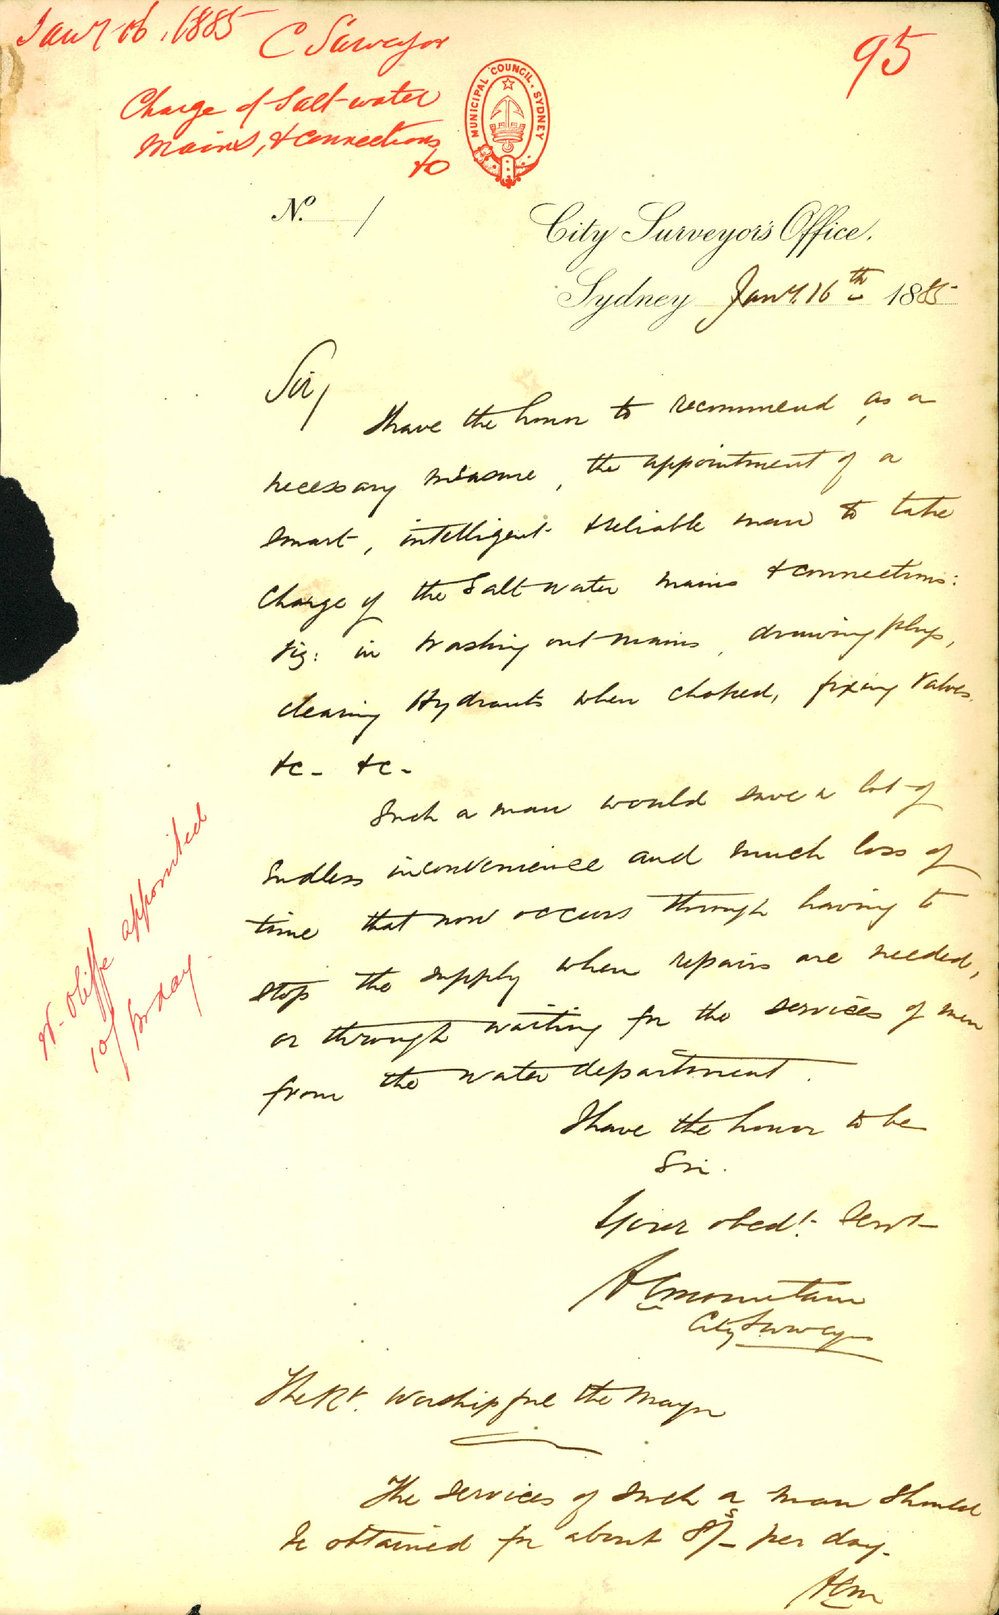 Jany 16. 1885
C Surveyor
95
Charge of Salt-water
Mains, & connections
to
MUNICIPAL COUNCIL. SYDNEY
No. /
City Surveyor's Office.
Sydney Jany. 16th 1885
Sir,
I have the honor to recommend, as a
necessary measure, the appointment of a
smart, intelligent & reliable man to take
charge of the Salt water mains & connections:
viz: in washing out mains, drawing plugs,
clearing Hydrants when choked, fixing Valves.
&c - &c -
Such a man would save a lot of
endless inconvenience and much loss of
time that now occurs through having to
stop the supply when repairs are needed,
or through waiting for the services of men
from the water department.
I have the honor to be
Sir.
Your obedt. Servt
A C Mountain
City Surveyor
The Rt. Worshipful the Mayor
The services of such a man should
be obtained for about 8s/- per day.
ACM
W. Oliffe appointed
10/ per day.